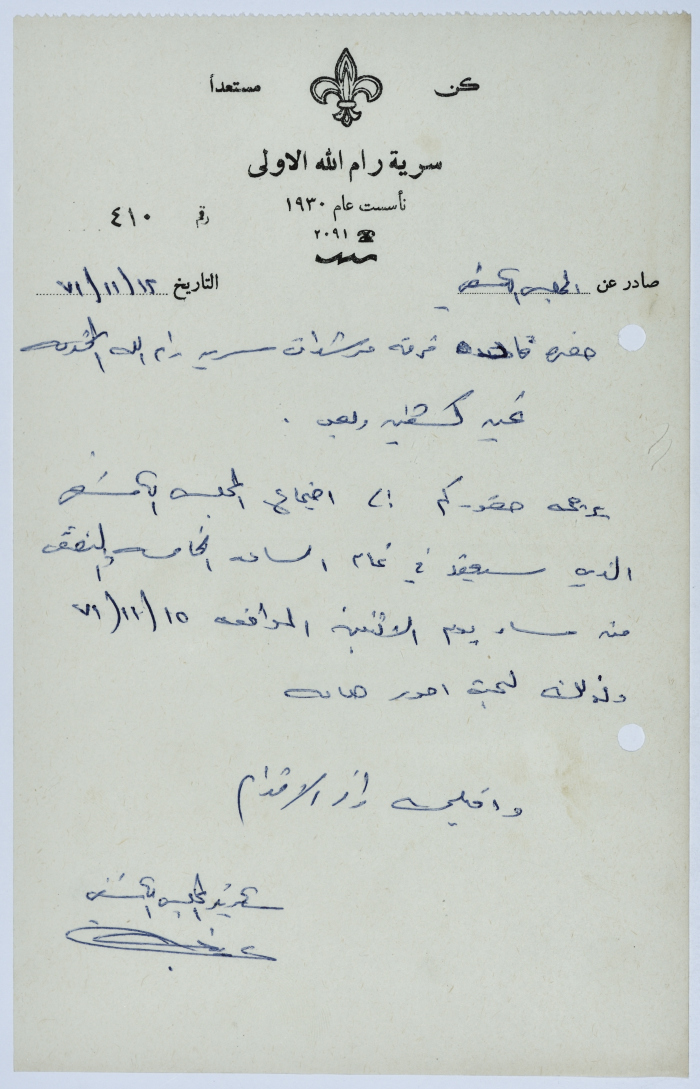 كن مستعداً
سرية رام الله الاولى
تأسست عام ١٩٣٠
رقم ٤١٠
☎ ٢٠٩١
صادر عن المجلس الكشفي التاريخ ١٢/١١/٧١
حضرة قائدة فرقة مرشدات سرية رام الله المحترمة
تحية كشفية وبعد .
يرجى حضوركم الى اجتماع المجلس الكشفي
الذي سيعقد في تمام الساعة الخامسة والنصف
من مساء يوم الاثنين الموافق ١٥/١١/٧١
وذلك لبحث امور هامة
واقبلي الاحترام
سكرتير المجلس الكشفي